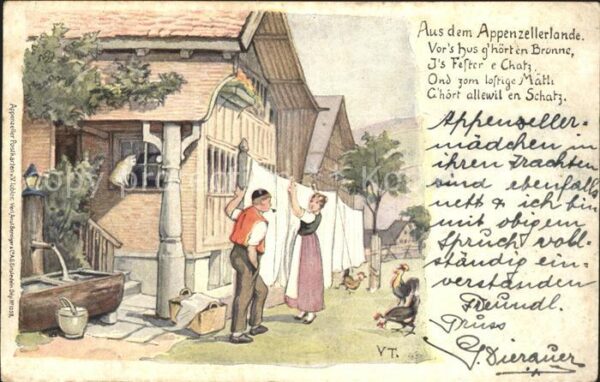 Aus dem Appenzellerlande.
Vor's Hus g'hört en Bronne,
I's Fester e Chatz,
Ond zom lostige Mätli
G'hört allewil en Schatz.
Appenzeller-
mädchen in
ihren Trachten
sind ebenfalls
nett & ich bin
mit obigem
Spruch voll-
ständig ein-
verstanden
Freundl.
Gruss
Dierauer
V T.
Appenzeller Postkarten v. V. Tobler.